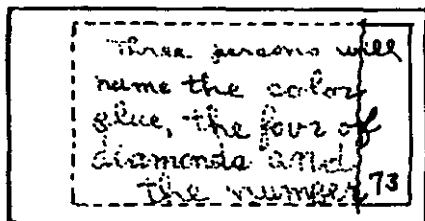 Three persons will
name the color
glue, the four of
diamonds and
the number 73